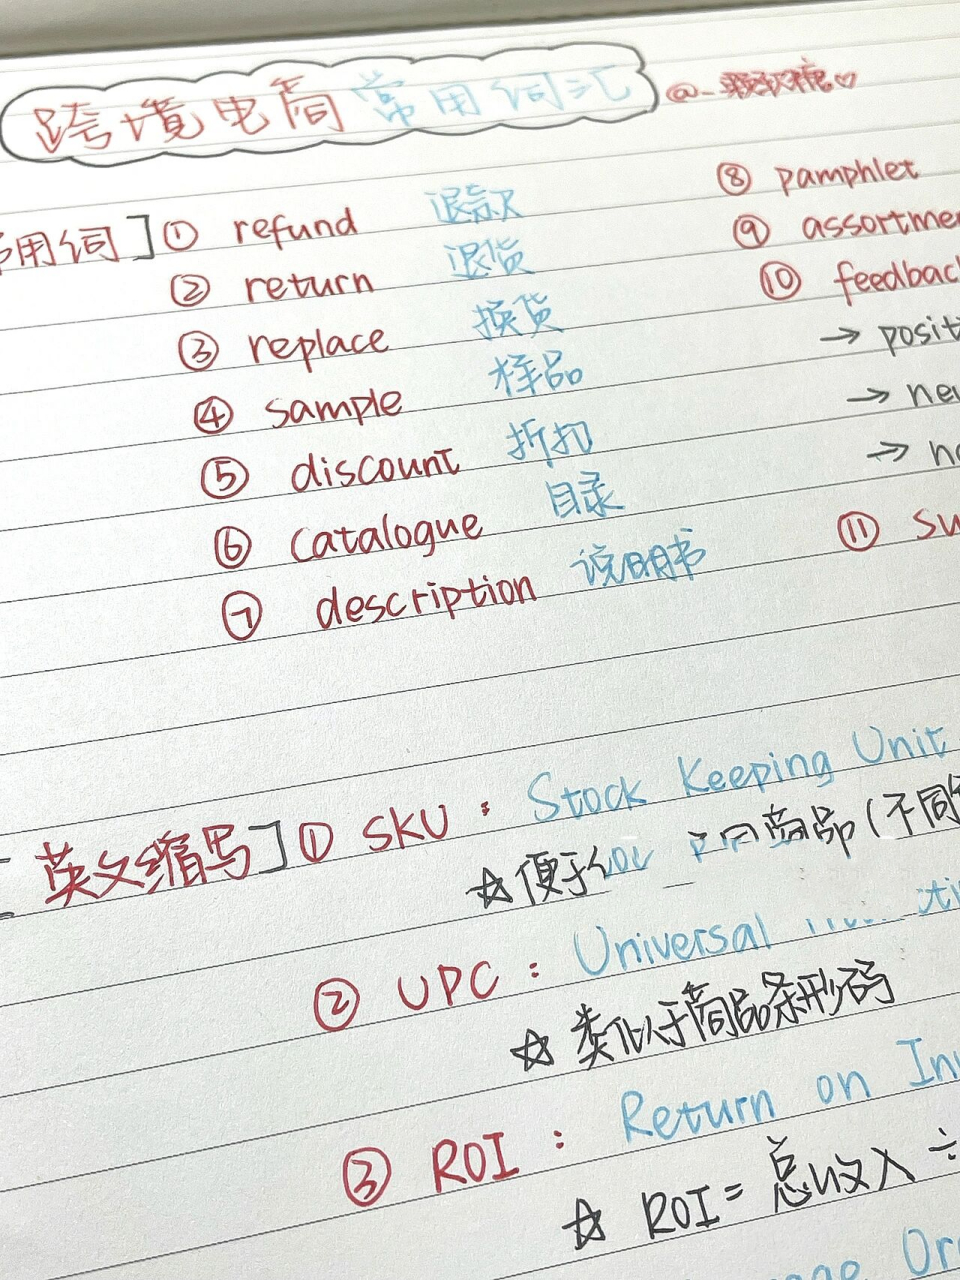 跨境电商常用词汇
用词] ① refund 退款
② return 退货
③ replace 换货
④ sample 样品
⑤ discount 折扣
⑥ catalogue 目录
⑦ description 说明书
⑧ pamphlet
⑨ assortme
⑩ feedbac
→ posit
→ neu
→ n
⑪ su
英文缩写] ① SKU : Stock Keeping Unit
☆ 便于 不同商品(不同
② UPC : Universal
☆ 类似于商品条形码
③ ROI : Return on Inv
☆ ROI = 总收入 ÷